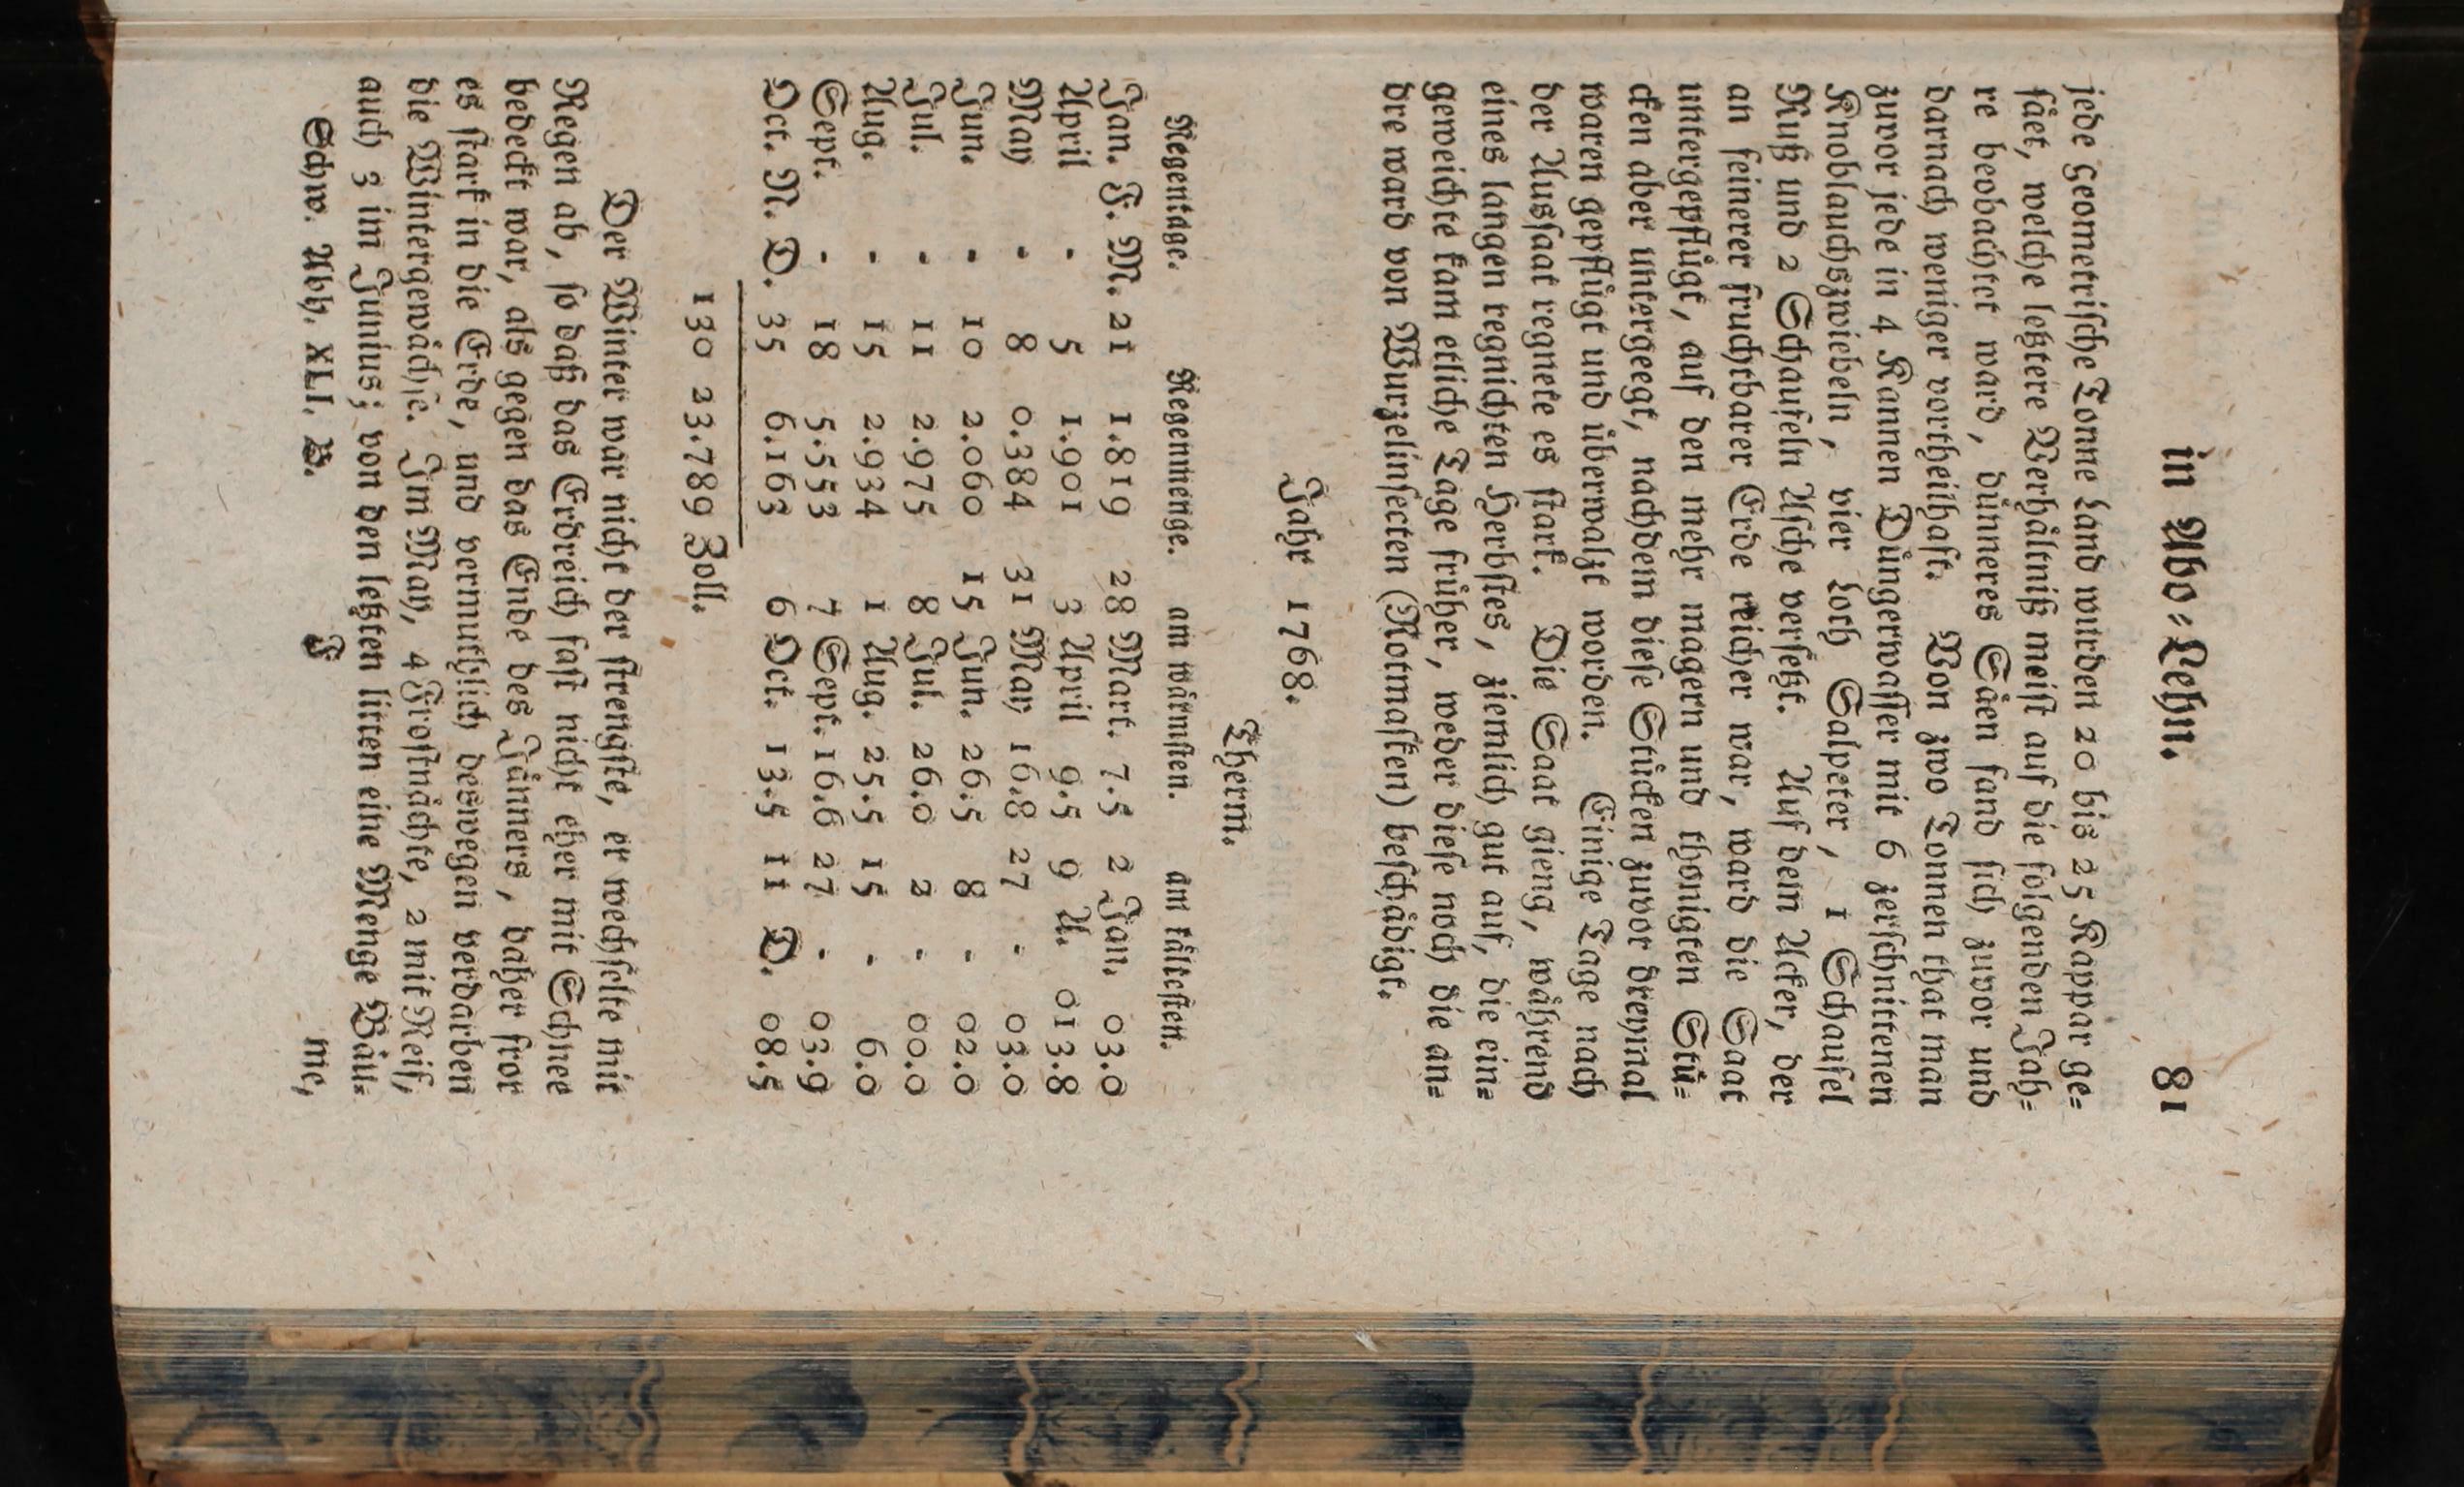 in Abo-Lehn. 81
jede geometrische Tonne Land wurden 20 bis 25 Kappar ge-
sået, welche letztere Verhåltniß meist auf die folgenden Jah-
re beobachtet ward, dünneres Såen fand sich zuvor und
darnach weniger vortheilhaft. Von zwo Tonnen that man
zuvor jede in 4 Kannen Düngerwasser mit 6 zerschnittenen
Knoblauchszwiebeln, vier Loth Salpeter, 1 Schaufel
Ruß und 2 Schaufeln Asche versetzt. Auf dem Acker, der
an feinerer fruchtbarer Erde reicher war, ward die Saat
untergepflügt, auf den mehr magern und thonigten Stü-
cken aber untergeegt, nachdem diese Stücken zuvor dreymal
waren gepflügt und überwalzt worden. Einige Tage nach
der Aussaat regnete es stark. Die Saat gieng, während
eines langen regnichten Herbstes, ziemlich gut auf, die ein-
geweichte kam etliche Tage früher, weder diese noch die an-
dre ward von Wurzelinsecten (Rotmasken) beschådigt.
Jahr 1768.
Therm.
Regentage. Regenmenge. am wärmsten. am kältesten.
Jan. F. M. 21 1.819 28 Mart. 7.5 2 Jan. 03.0
April - 5 1.901 3 April 9.5 9 A. 013.8
May - 8 0.384 31 May 16.8 27 - 03.0
Jun. - 10 2.060 15 Jun. 26.5 8 - 02.0
Jul. - 11 2.975 8 Jul. 26.0 2 - 00.0
Aug. - 15 2.934 1 Aug. 25.5 15 - 6.0
Sept. - 18 5.553 7 Sept. 16.6 27 - 03.9
Oct. N. D. 35 6.163 6 Oct. 13.5 11 D. 08.5
130 23.789 Zoll.
Der Winter war nicht der strengste, er wechselte mit
Regen ab, so daß das Erdreich fast nicht eher mit Schnee
bedeckt war, als gegen das Ende des Jånners, daher fror
es stark in die Erde, und vermuthlich deswegen verdarben
die Wintergewåchse. Im May, 4 Frostnåchte, 2 mit Reif,
auch 3 im Junius; von den letzten litten eine Menge Båu-
Schw. Abh. XLI. B. F me,